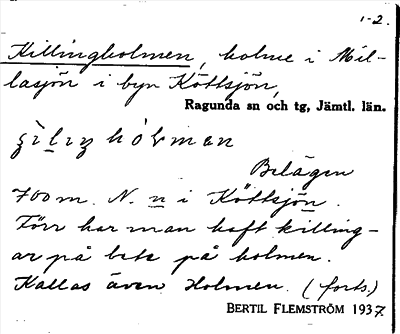 1-2.
Killingholmen, holme i Mil-
lasjön i byn Köttsjön,
Ragunda sn och tg, Jämtl. län.
hòlmen
Belägen
700 m. N. n i Köttsjön.
Förr har man haft killing-
ar på bete på holmen.
Kallas även Holmen. (forts.)
BERTIL FLEMSTRÖM 1937.